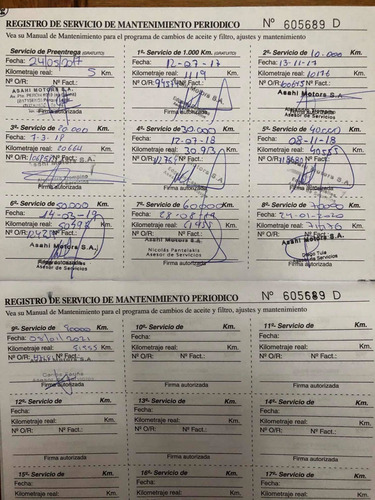 REGISTRO DE SERVICIO DE MANTENIMIENTO PERIODICO Nº 605689 D
Vea su Manual de Mantenimiento para el programa de cambios de aceite y filtro, ajustes y mantenimiento
Servicio de Preentrega (GRATUITO)
Fecha: 24/05/2017
Kilometraje real: 5 Km.
Nº O/R: Nº Fact.:
ASAHI MOTORS S.A.
Firma autorizada
1º- Servicio de 1.000 Km. (GRATUITO)
Fecha: 12-07-17
Kilometraje real: 1119 Km.
Nº O/R: Nº Fact.:
Asahi Motors S.A.
Firma autorizada
2º- Servicio de 10.000 Km.
Fecha: 13-11-17
Kilometraje real: 10176 Km.
Nº O/R: Nº Fact.:
Asahi Motors S.A.
Asesor de Servicios
3º- Servicio de 20.000 Km.
Fecha: 7-3-18
Kilometraje real: 20661 Km.
Nº O/R: Nº Fact.:
Asahi Motors S.A.
Firma autorizada
4º- Servicio de 30.000 Km.
Fecha: 12-07-18
Kilometraje real: 30.973 Km.
Nº O/R: Nº Fact.:
Firma autorizada
5º- Servicio de 40000 Km.
Fecha: 08-11-18
Kilometraje real: 40585 Km.
Nº O/R: 118680 Nº Fact.:
Firma autorizada
6º- Servicio de 50.000 Km.
Fecha: 14-03-19
Kilometraje real: 50498 Km.
Nº O/R: Nº Fact.:
Asahi Motors S.A.
Asesor de Servicios
7º- Servicio de 60000 Km.
Fecha: 28-08-19
Kilometraje real: 61455 Km.
Nº O/R: Nº Fact.:
Asahi Motors S.A.
Nicolás Pantalakis
Asesor de Servicios
Firma autorizada
8º- Servicio de 70000 Km.
Fecha: 24-01-2020
Kilometraje real: Km.
Nº O/R: Nº Fact.:
Asahi Motors S.A.
Asesor de Servicios
Firma autorizada
REGISTRO DE SERVICIO DE MANTENIMIENTO PERIODICO Nº 605689 D
Vea su Manual de Mantenimiento para el programa de cambios de aceite y filtro, ajustes y mantenimiento
9º- Servicio de 80000 Km.
Fecha: 05/01/2021
Kilometraje real: Km.
Nº O/R: Nº Fact.:
Firma autorizada
10º- Servicio de Km.
Fecha:
Kilometraje real: Km.
Nº O/R: Nº Fact.:
Firma autorizada
11º- Servicio de Km.
Fecha:
Kilometraje real: Km.
Nº O/R: Nº Fact.:
Firma autorizada
12º- Servicio de Km.
Fecha:
Kilometraje real: Km.
Nº O/R: Nº Fact.:
Firma autorizada
13º- Servicio de Km.
Fecha:
Kilometraje real: Km.
Nº O/R: Nº Fact.:
Firma autorizada
14º- Servicio de Km.
Fecha:
Kilometraje real: Km.
Nº O/R: Nº Fact.:
Firma autorizada
15º- Servicio de Km.
Fecha:
Kilometraje real: Km.
16º- Servicio de Km.
Fecha:
Kilometraje real: Km.
17º- Servicio de Km.
Fecha:
Kilometraje real: Km.